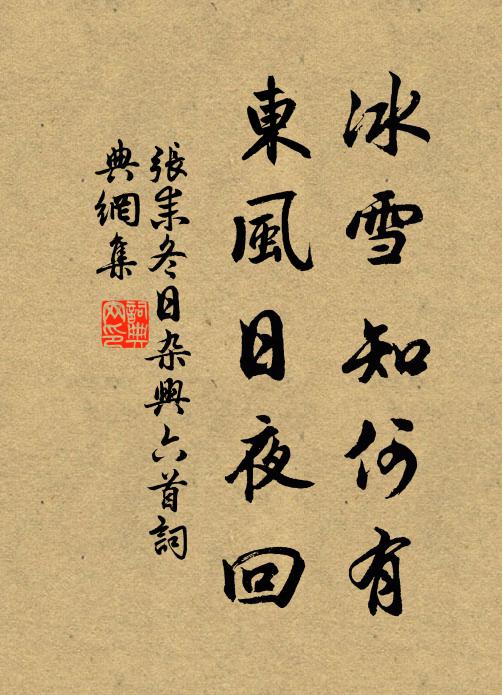 冰雪知何有
東風日夜回
張耒冬日杂興六首詞
典網集
詞典
网印